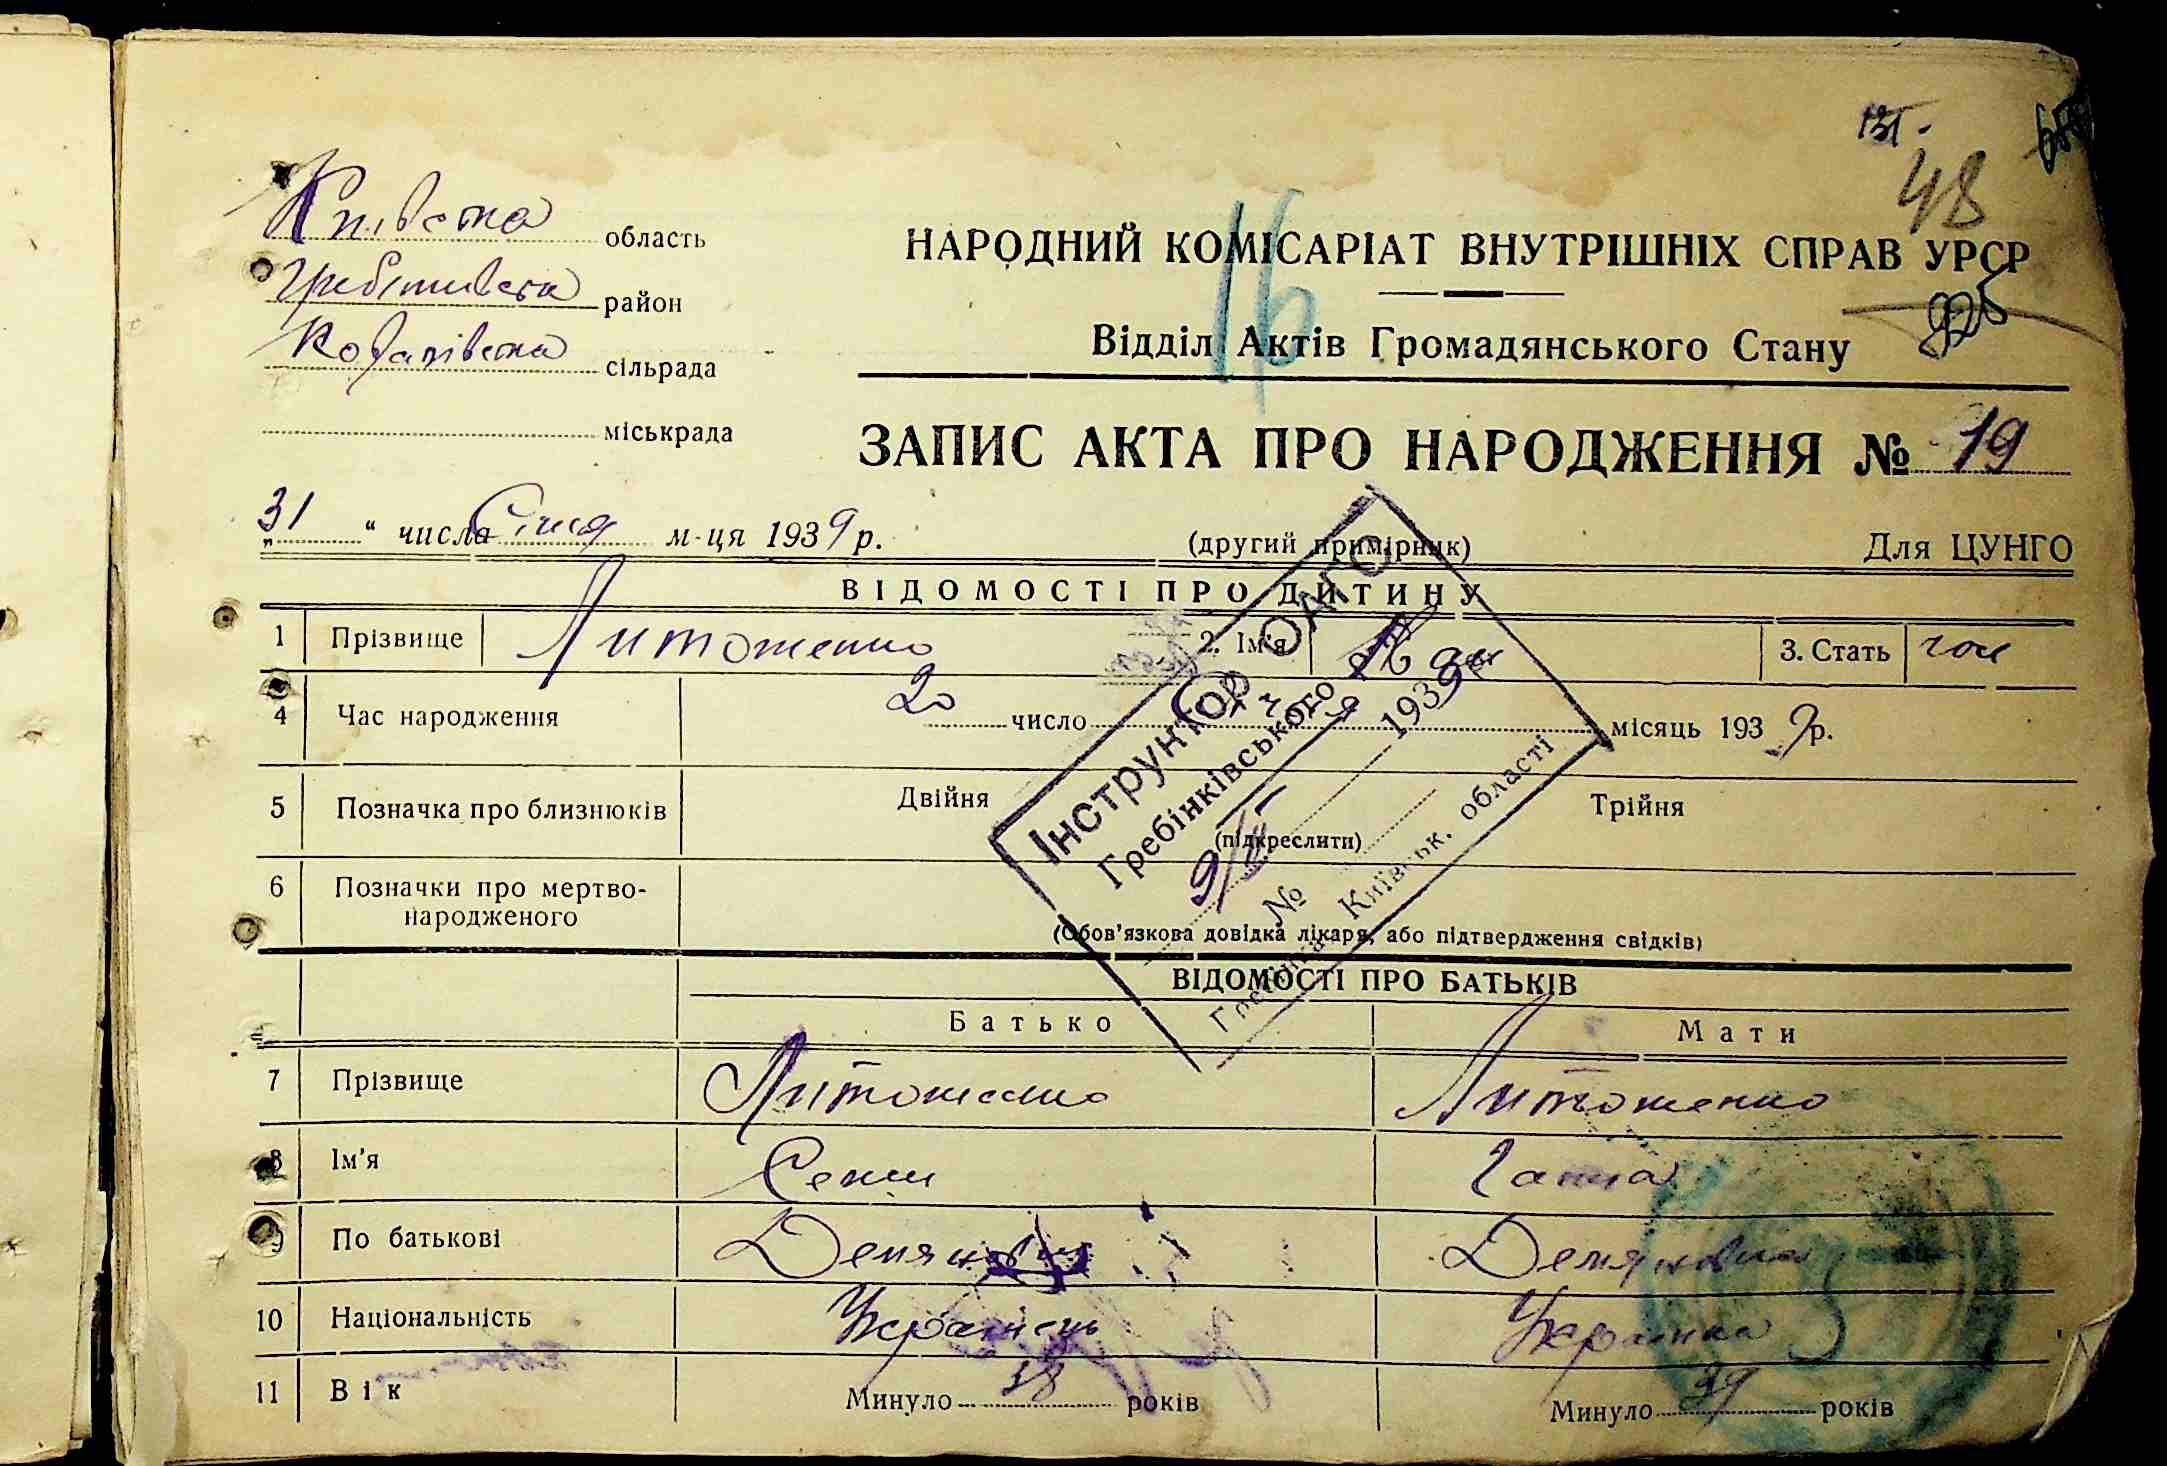 131.
48
Київська область
НАРОДНИЙ КОМІСАРІАТ ВНУТРІШНІХ СПРАВ УРСР
16
район
925
Відділ Актів Громадянського Стану
сільрада
міськрада
ЗАПИС АКТА ПРО НАРОДЖЕННЯ № 19
„31“ числа Січня м-ця 1939 р.
(другий примірник)
Для ЦУНГО
ВІДОМОСТІ ПРО ДИТИНУ
1 Прізвище Литоженко 2. Ім'я Іван 3. Стать чол
4 Час народження 20 число Січня місяць 1939 р.
5 Позначка про близнюків Двійня Трійня
(підкреслити)
6 Позначки про мертвонародженого
(Обов'язкова довідка лікаря, або підтвердження свідків)
Інструктор ОАГО
Гребінківського
1939
№
Гребінка Київськ. області
ВІДОМОСТІ ПРО БАТЬКІВ
Батько Мати
7 Прізвище Литоженко Литоженко
8 Ім'я Ганна
9 По батькові Демяновна
10 Національність Українець Українка
11 Вік Минуло 38 років Минуло 39 років